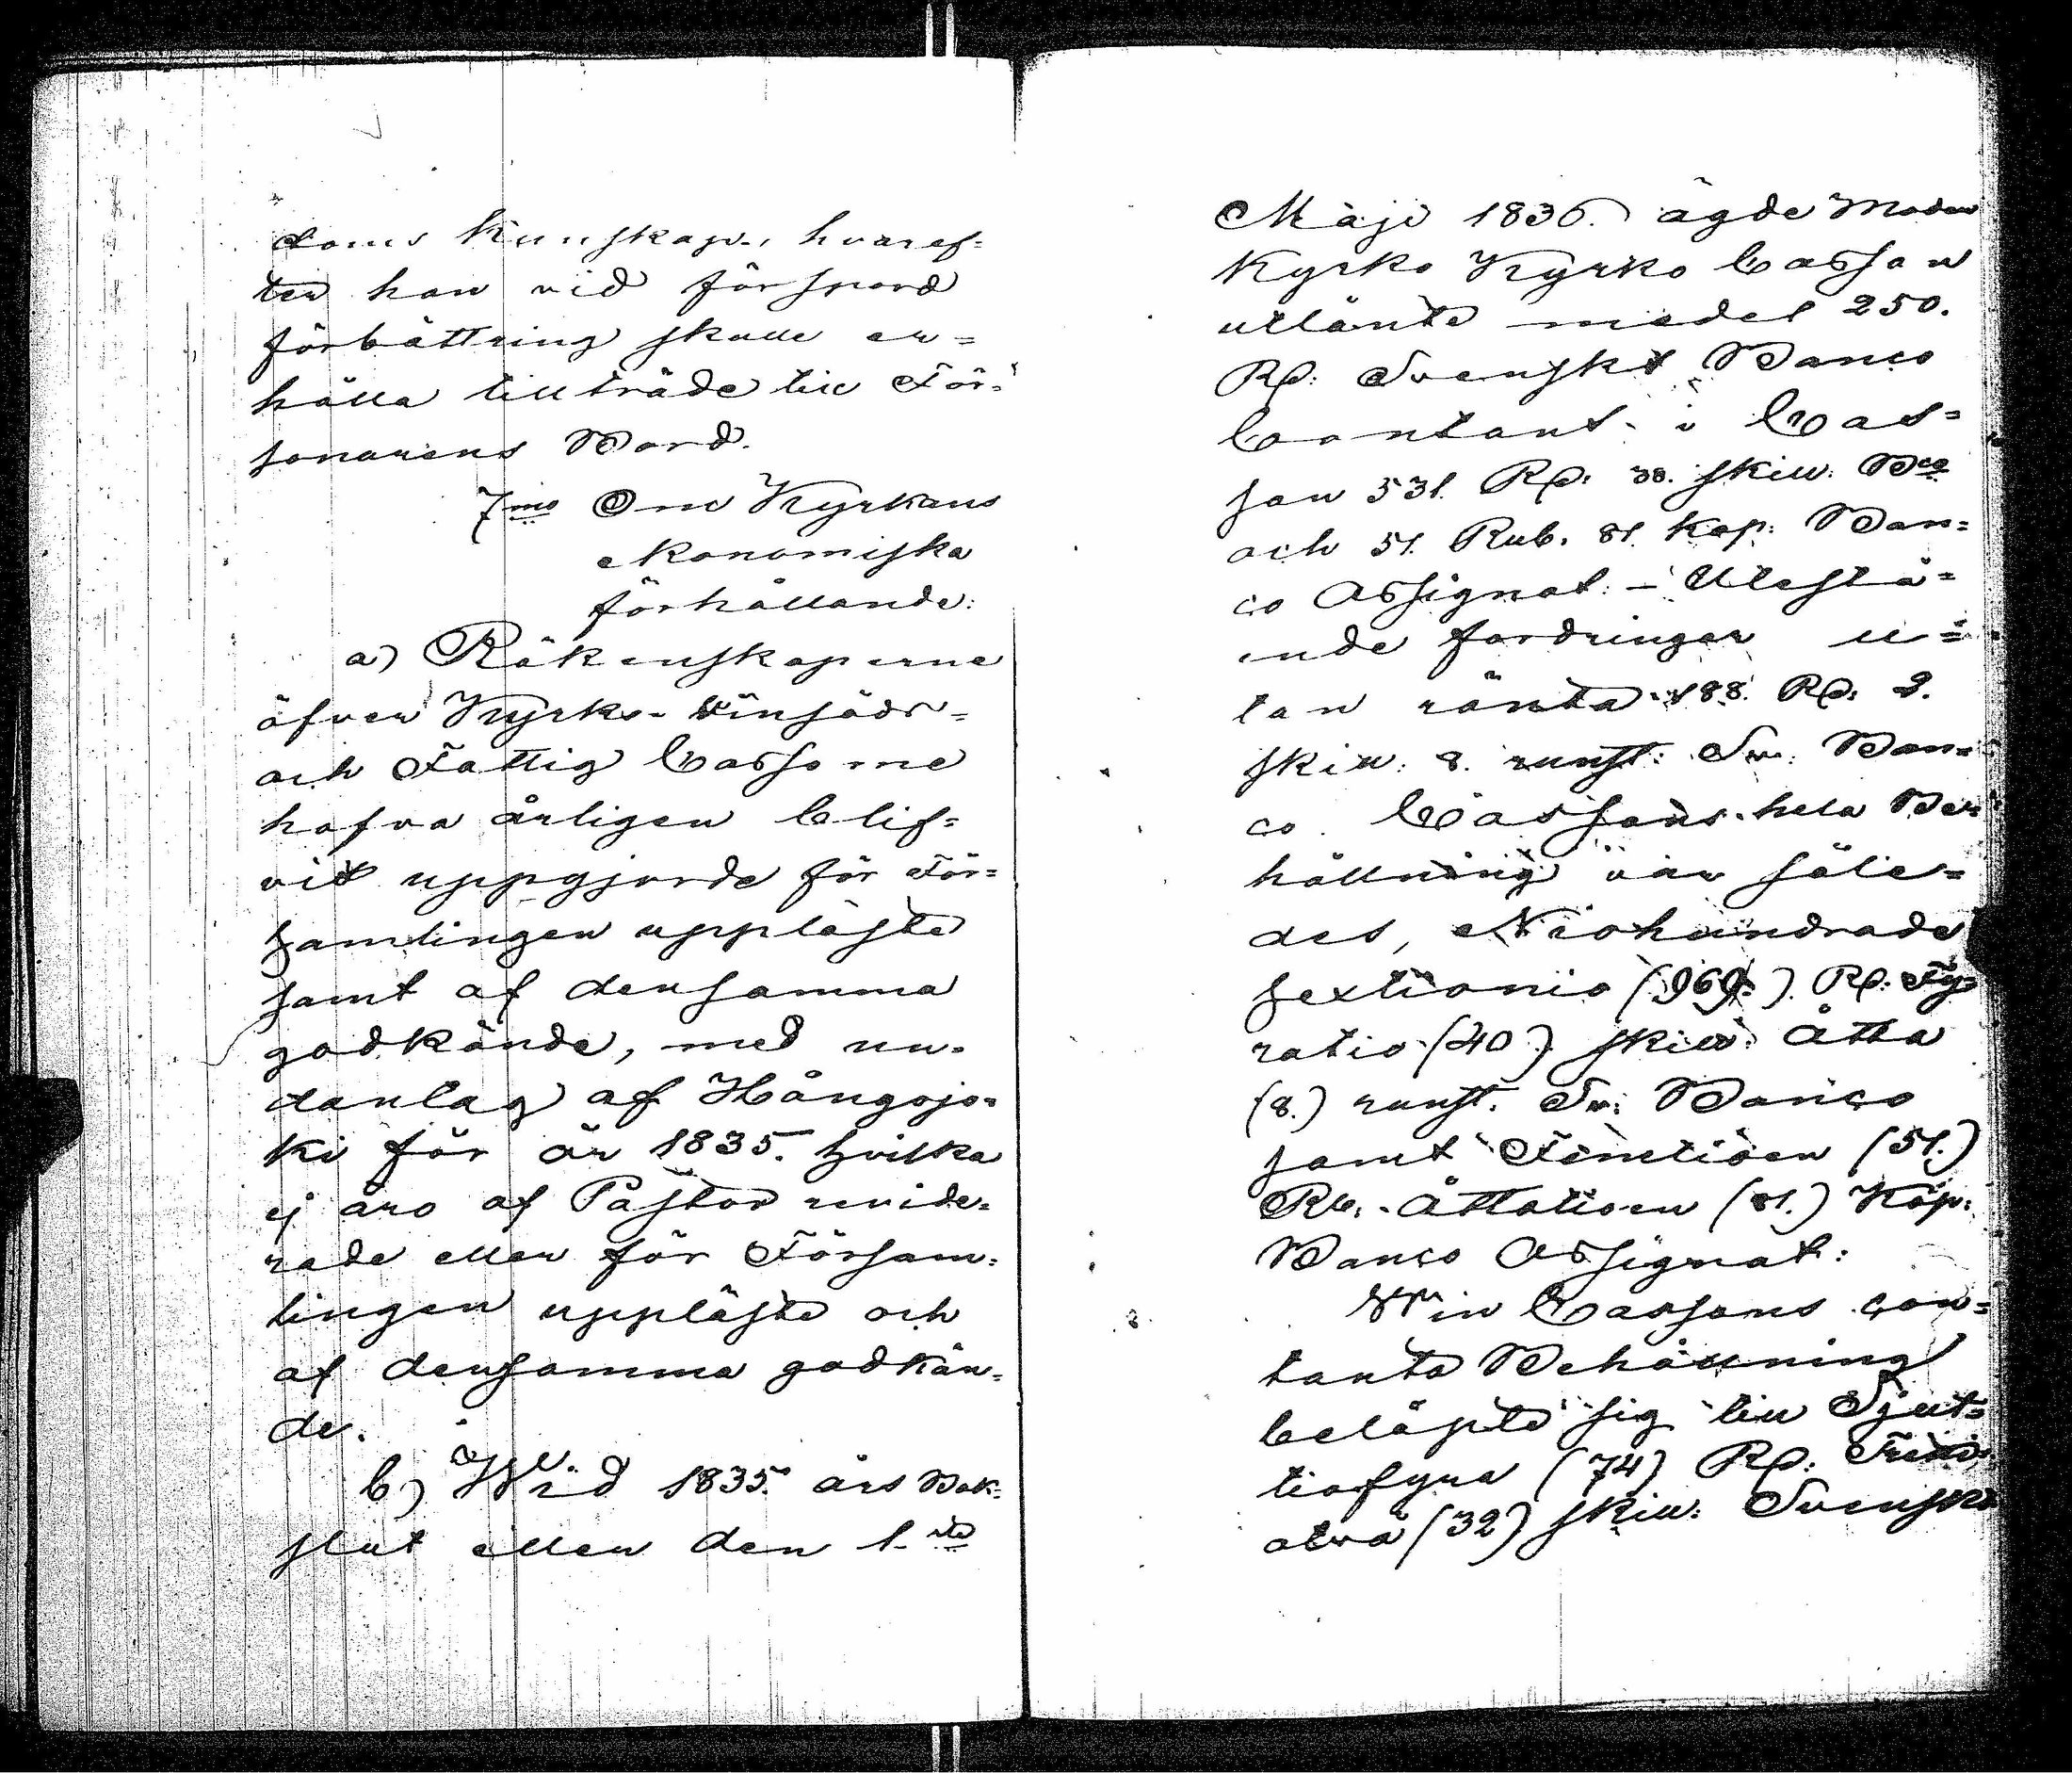 doms kunskap, hvaref=
ter han vid försport
förbättring skulle er=
hålla tillträde till För=
sonarens Bord.
7mo Om Kyrkans
ekonomiska
förhållande:
a) Räkenskaperne
öfver Kyrko- Vinsäds=
och Fattig Cassorne
hafva årligen blif=
vit uppgjorde för För=
samlingen uppläste
samt af densamma
godkände, med un=
dantag af Hångojo=
ki för år 1835. hvilka
ej äro af Pastor revide=
rade eller för Försam=
lingen uppläste och
af densamma godkän=
de.
b) Wid 1835. års Bok=
slut eller den 1.sta
Maji 1836. ägde Moder
Kyrko Kyrko Cassan
utlånte medel 250.
Rd: Svenskt Banco
Contant i Cas=
san 531. Rd: 38. skill: Bco
och 51. Rub. 81. Kop: Ban=
co Assignat: – Utestå=
ende fordringar u=
tan ränta 188. Rd: 2.
skill: 8. runst: Sv: Ban=
co. Cassans hela Be=
hållning var såle=
des, Niohundrade
sextionio (969.) Rd: Fy=
ratio (40) skill: Åtta
(8.) runst: Sv: Banco
samt Femtioen (51.)
Rb: Åttatioen (81.) Kop:
Banco Assignat:
Vin Cassans con=
tanta Behållning
belöpte sig till Sjut=
tiofyra (74) Rd: Tretti=
otvå (32) skill: Svenskt